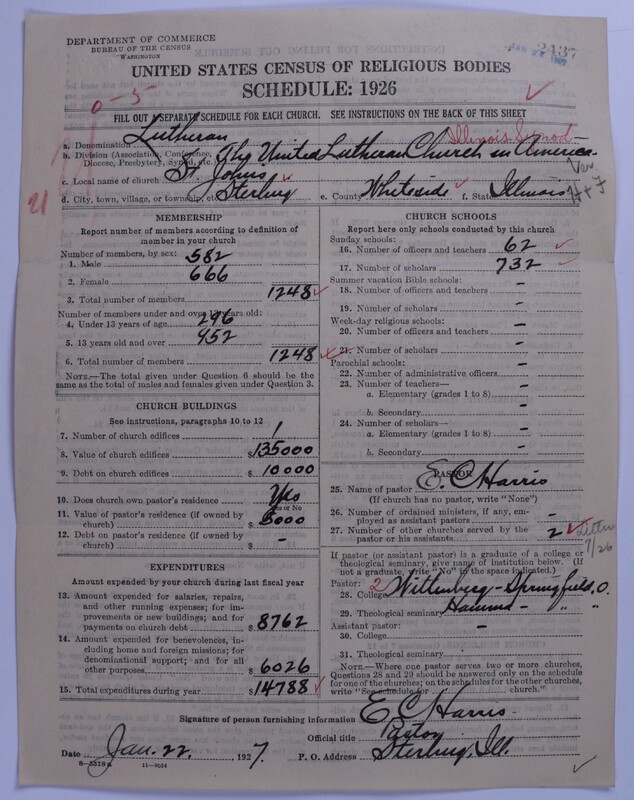 DEPARTMENT OF COMMERCE
BUREAU OF THE CENSUS
WASHINGTON
2437
UNITED STATES CENSUS OF RELIGIOUS BODIES
SCHEDULE: 1926
0-5
FILL OUT A SEPARATE SCHEDULE FOR EACH CHURCH. SEE INSTRUCTIONS ON THE BACK OF THIS SHEET
a. Denomination Lutheran Illinois Synod
b. Division (Association, Conference, Diocese, Presbytery, Synod, etc.) The United Lutheran Church in America
c. Local name of church St. Johns
d. City, town, village, or township, etc. Sterling e. County Whiteside f. State Illinois
21
MEMBERSHIP
Report number of members according to definition of member in your church
Number of members, by sex:
1. Male 582
2. Female 666
3. Total number of members 1248
Number of members under and over 13 years old:
4. Under 13 years of age 296
5. 13 years old and over 952
6. Total number of members 1248
NOTE.—The total given under Question 6 should be the same as the total of males and females given under Question 3.
CHURCH BUILDINGS
See instructions, paragraphs 10 to 12
7. Number of church edifices 1
8. Value of church edifices $135000
9. Debt on church edifices $10000
10. Does church own pastor's residence Yes
Yes or No
11. Value of pastor's residence (if owned by church) $5000
12. Debt on pastor's residence (if owned by church) $ -
EXPENDITURES
Amount expended by your church during last fiscal year
13. Amount expended for salaries, repairs, and other running expenses; for improvements or new buildings; and for payments on church debt $8762
14. Amount expended for benevolences, including home and foreign missions; for denominational support; and for all other purposes $6026
15. Total expenditures during year $14788
CHURCH SCHOOLS
Report here only schools conducted by this church
Sunday schools:
16. Number of officers and teachers 62
17. Number of scholars 732
Summer vacation Bible schools:
18. Number of officers and teachers -
19. Number of scholars -
Week-day religious schools:
20. Number of officers and teachers -
21. Number of scholars -
Parochial schools:
22. Number of administrative officers -
23. Number of teachers—
a. Elementary (grades 1 to 8) -
b. Secondary -
24. Number of scholars—
a. Elementary (grades 1 to 8) -
b. Secondary -
PASTOR
25. Name of pastor E. C. Harris
(If church has no pastor, write "None")
26. Number of ordained ministers, if any, employed as assistant pastors -
27. Number of other churches served by the pastor or his assistants 2
If pastor (or assistant pastor) is a graduate of a college or theological seminary, give name of institution below. (If not a graduate, write "No" in the space indicated.)
Pastor: 2
28. College Wittenberg - Springfield, O.
29. Theological seminary Hamma - " "
Assistant pastor:
30. College -
31. Theological seminary -
NOTE.—Where one pastor serves two or more churches, Questions 28 and 29 should be answered only on the schedule for one of the churches; on the schedules for the other churches, write "See schedule for church."
Signature of person furnishing information E. C. Harris
Official title Pastor
Date Jan. 22, 1927. P. O. Address Sterling, Ill.
8-5318a 11-9024